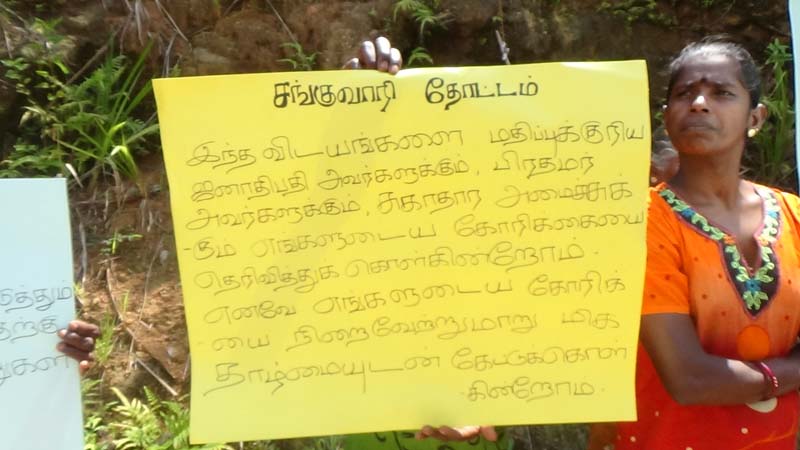 சங்குவாரி தோட்டம்
இந்த விடயங்களை மதிப்புக்குரிய
ஜனாதிபதி அவர்களுக்கும், பிரதமர்
அவர்களுக்கும், சுகாதார அமைச்சுக்
-கும் எங்களுடைய கோரிக்கையை
தெரிவித்துக் கொள்கின்றோம்.
எனவே எங்களுடைய கோரிக்
-யை நிறைவேற்றுமாறு மிக
தாழ்மையுடன் கேட்டுக்கொள்
-கின்றோம்.